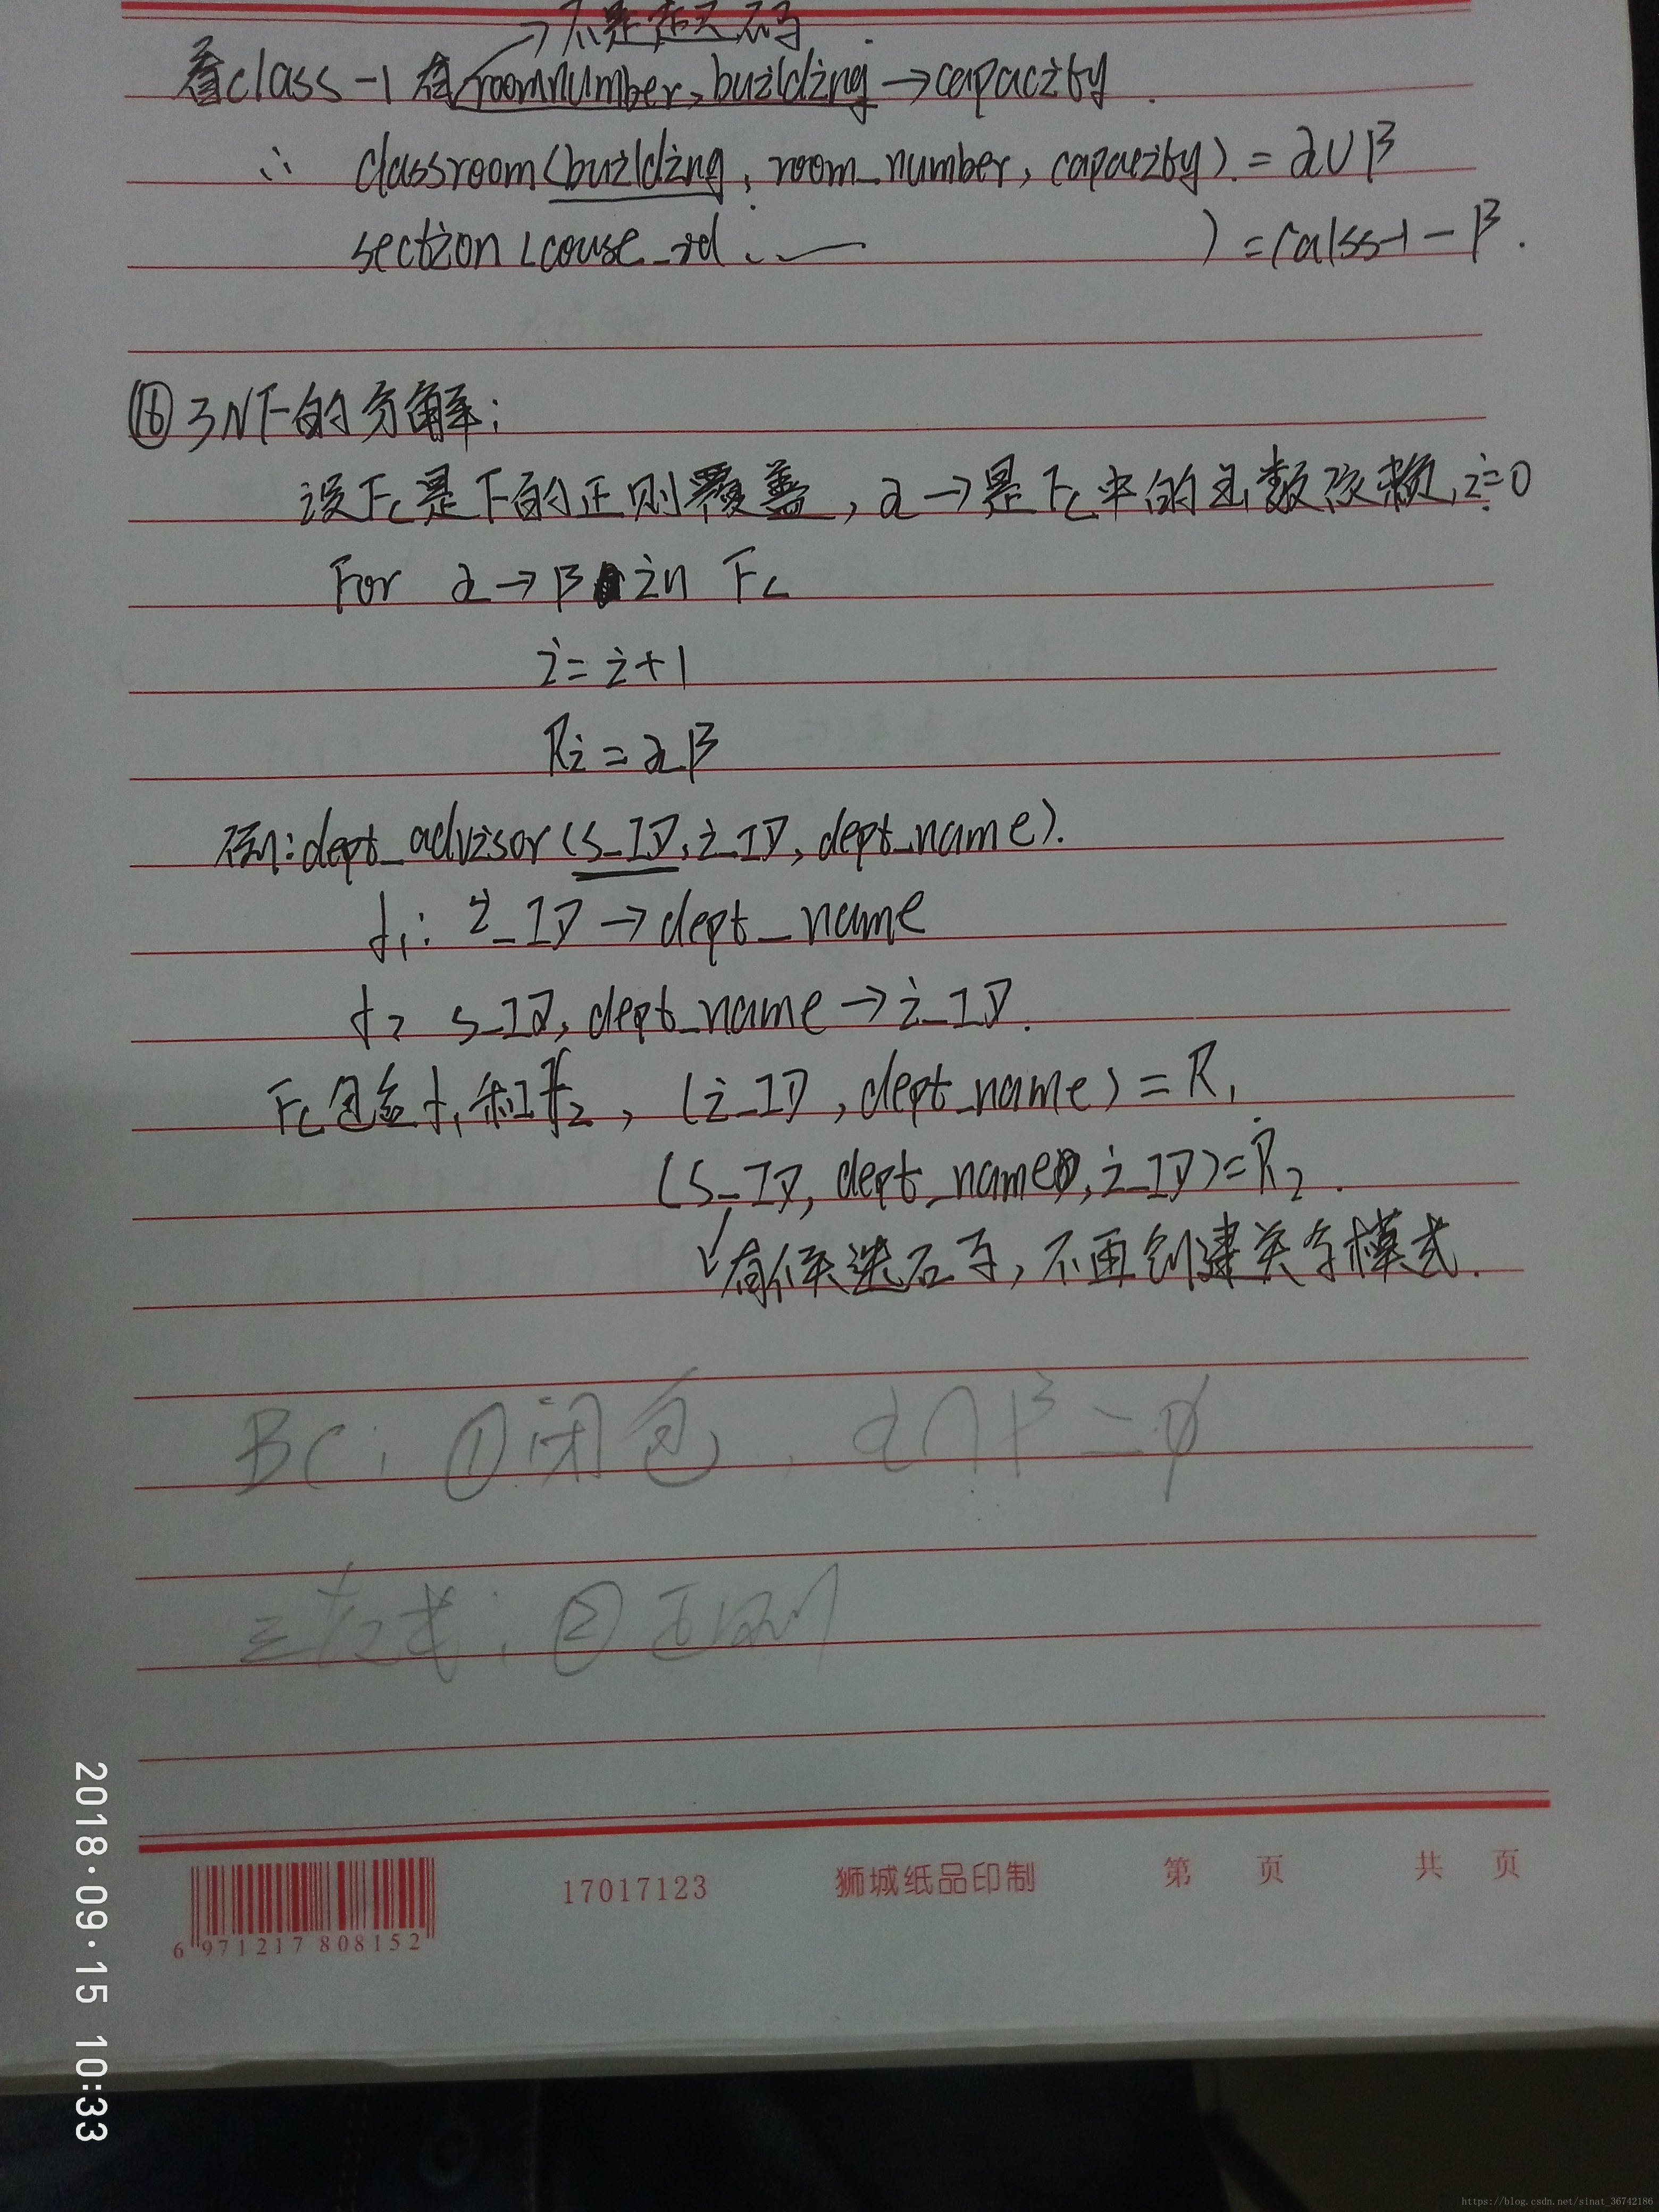 →不是超码
看class-1 有roomnumber, building → capacity
∴ classroom(building, room_number, capacity) = α∪β
section (couse_id ... ) = calss-1 - β.
⑯ 3NF的分解:
设Fc是F的正则覆盖, α→是Fc中的函数依赖, i=0
For α→β in Fc
i = i+1
Ri = αβ
例: dept_advisor (s_ID, i_ID, dept_name).
f1: i_ID → dept_name
f2 s_ID, dept_name → i_ID.
Fc包含f1和f2, (i_ID, dept_name) = R1
(s_ID, dept_name, i_ID) = R2.
有候选码, 不再创建关系模式.
BC: ①闭包, α∩β=∅
三范式: ②正则
6 971217 808152
17017123
狮城纸品印制
第 页 共 页
2018·09·15 10:33
https://blog.csdn.net/sinat_36742186